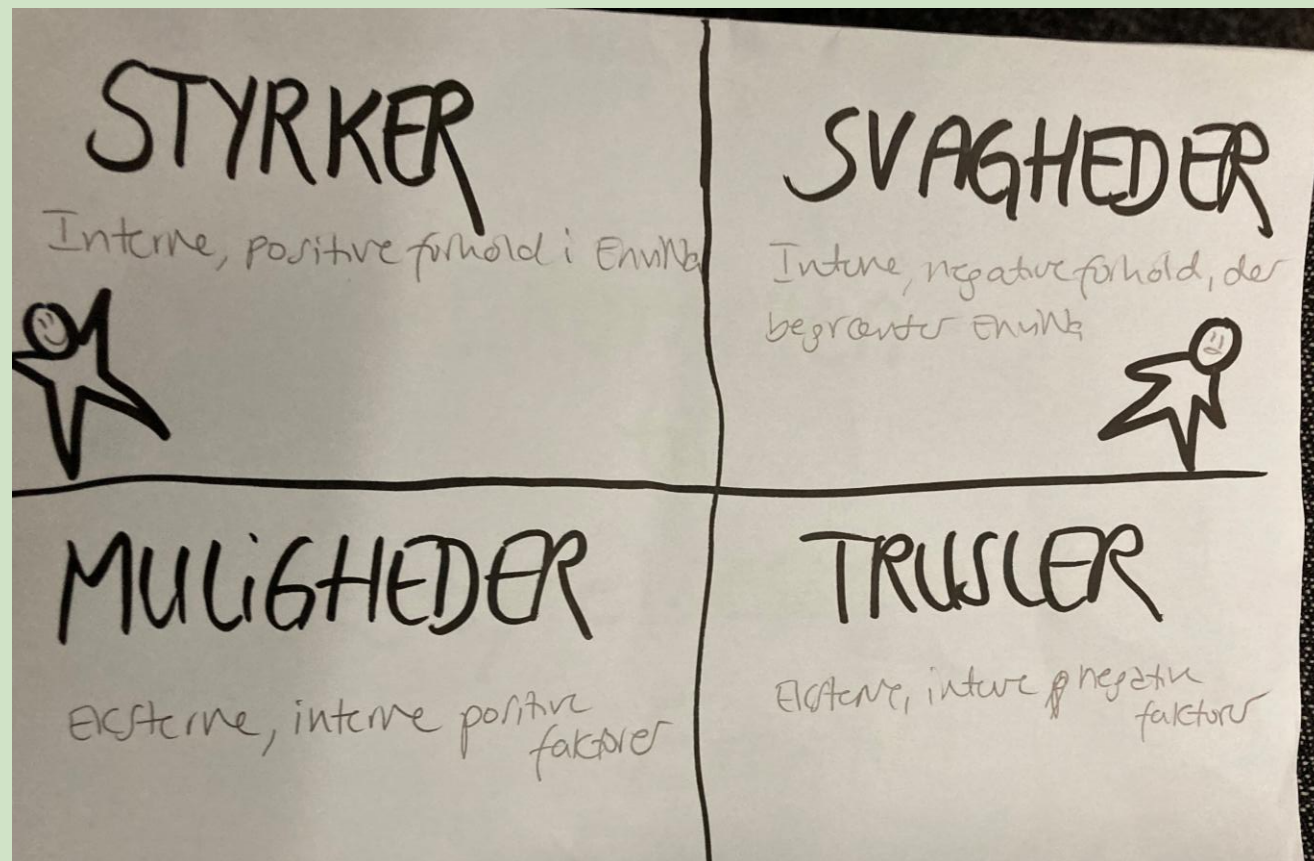 STYRKER
Interne, positive forhold i EnviNa
SVAGHEDER
Interne, negative forhold, der
begrænser EnviNa
MULiGHEDER
Eksterne, interne positive
faktorer
TRUSLER
Eksterne, interne negative
faktorer